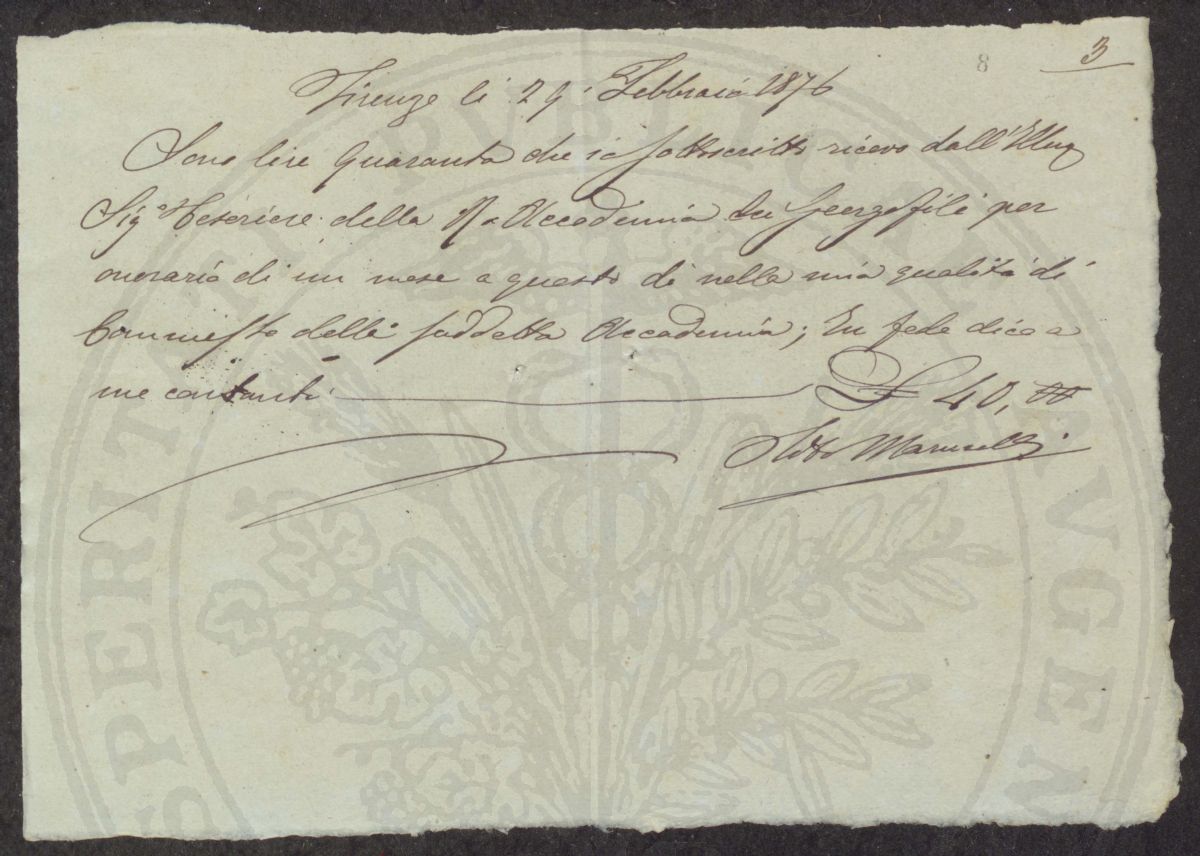 8
3
Firenze li 29. Febbraio 1876
Sono lire Quaranta che io sottoscritto ricevo dall'Illmo
Sig.e Tesoriere della R.a Accademia dei Georgofili per
onorario di un mese a questo dì nella mia qualità di
Commesso della suddetta Accademia; In fede dico a
me contanti £ 40, 00
Marucelli
PROSPERITATI PUBLICAE AUGEN